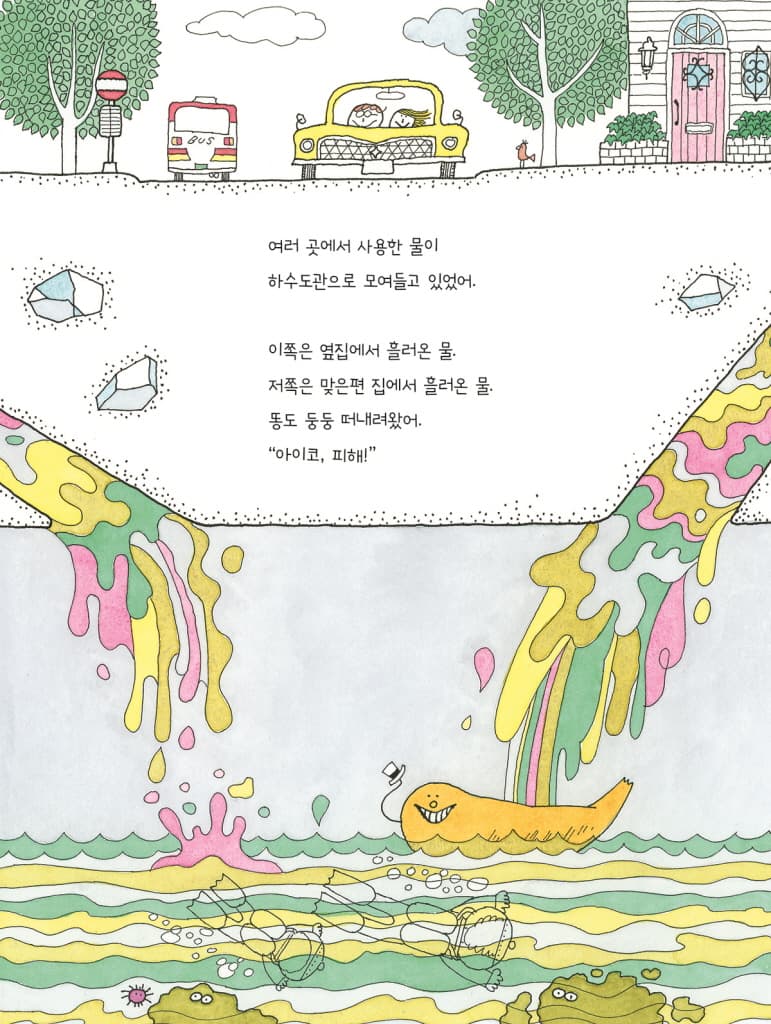 BUS
여러 곳에서 사용한 물이
하수도관으로 모여들고 있었어.
이쪽은 옆집에서 흘러온 물.
저쪽은 맞은편 집에서 흘러온 물.
똥도 둥둥 떠내려왔어.
“아이코, 피해!”